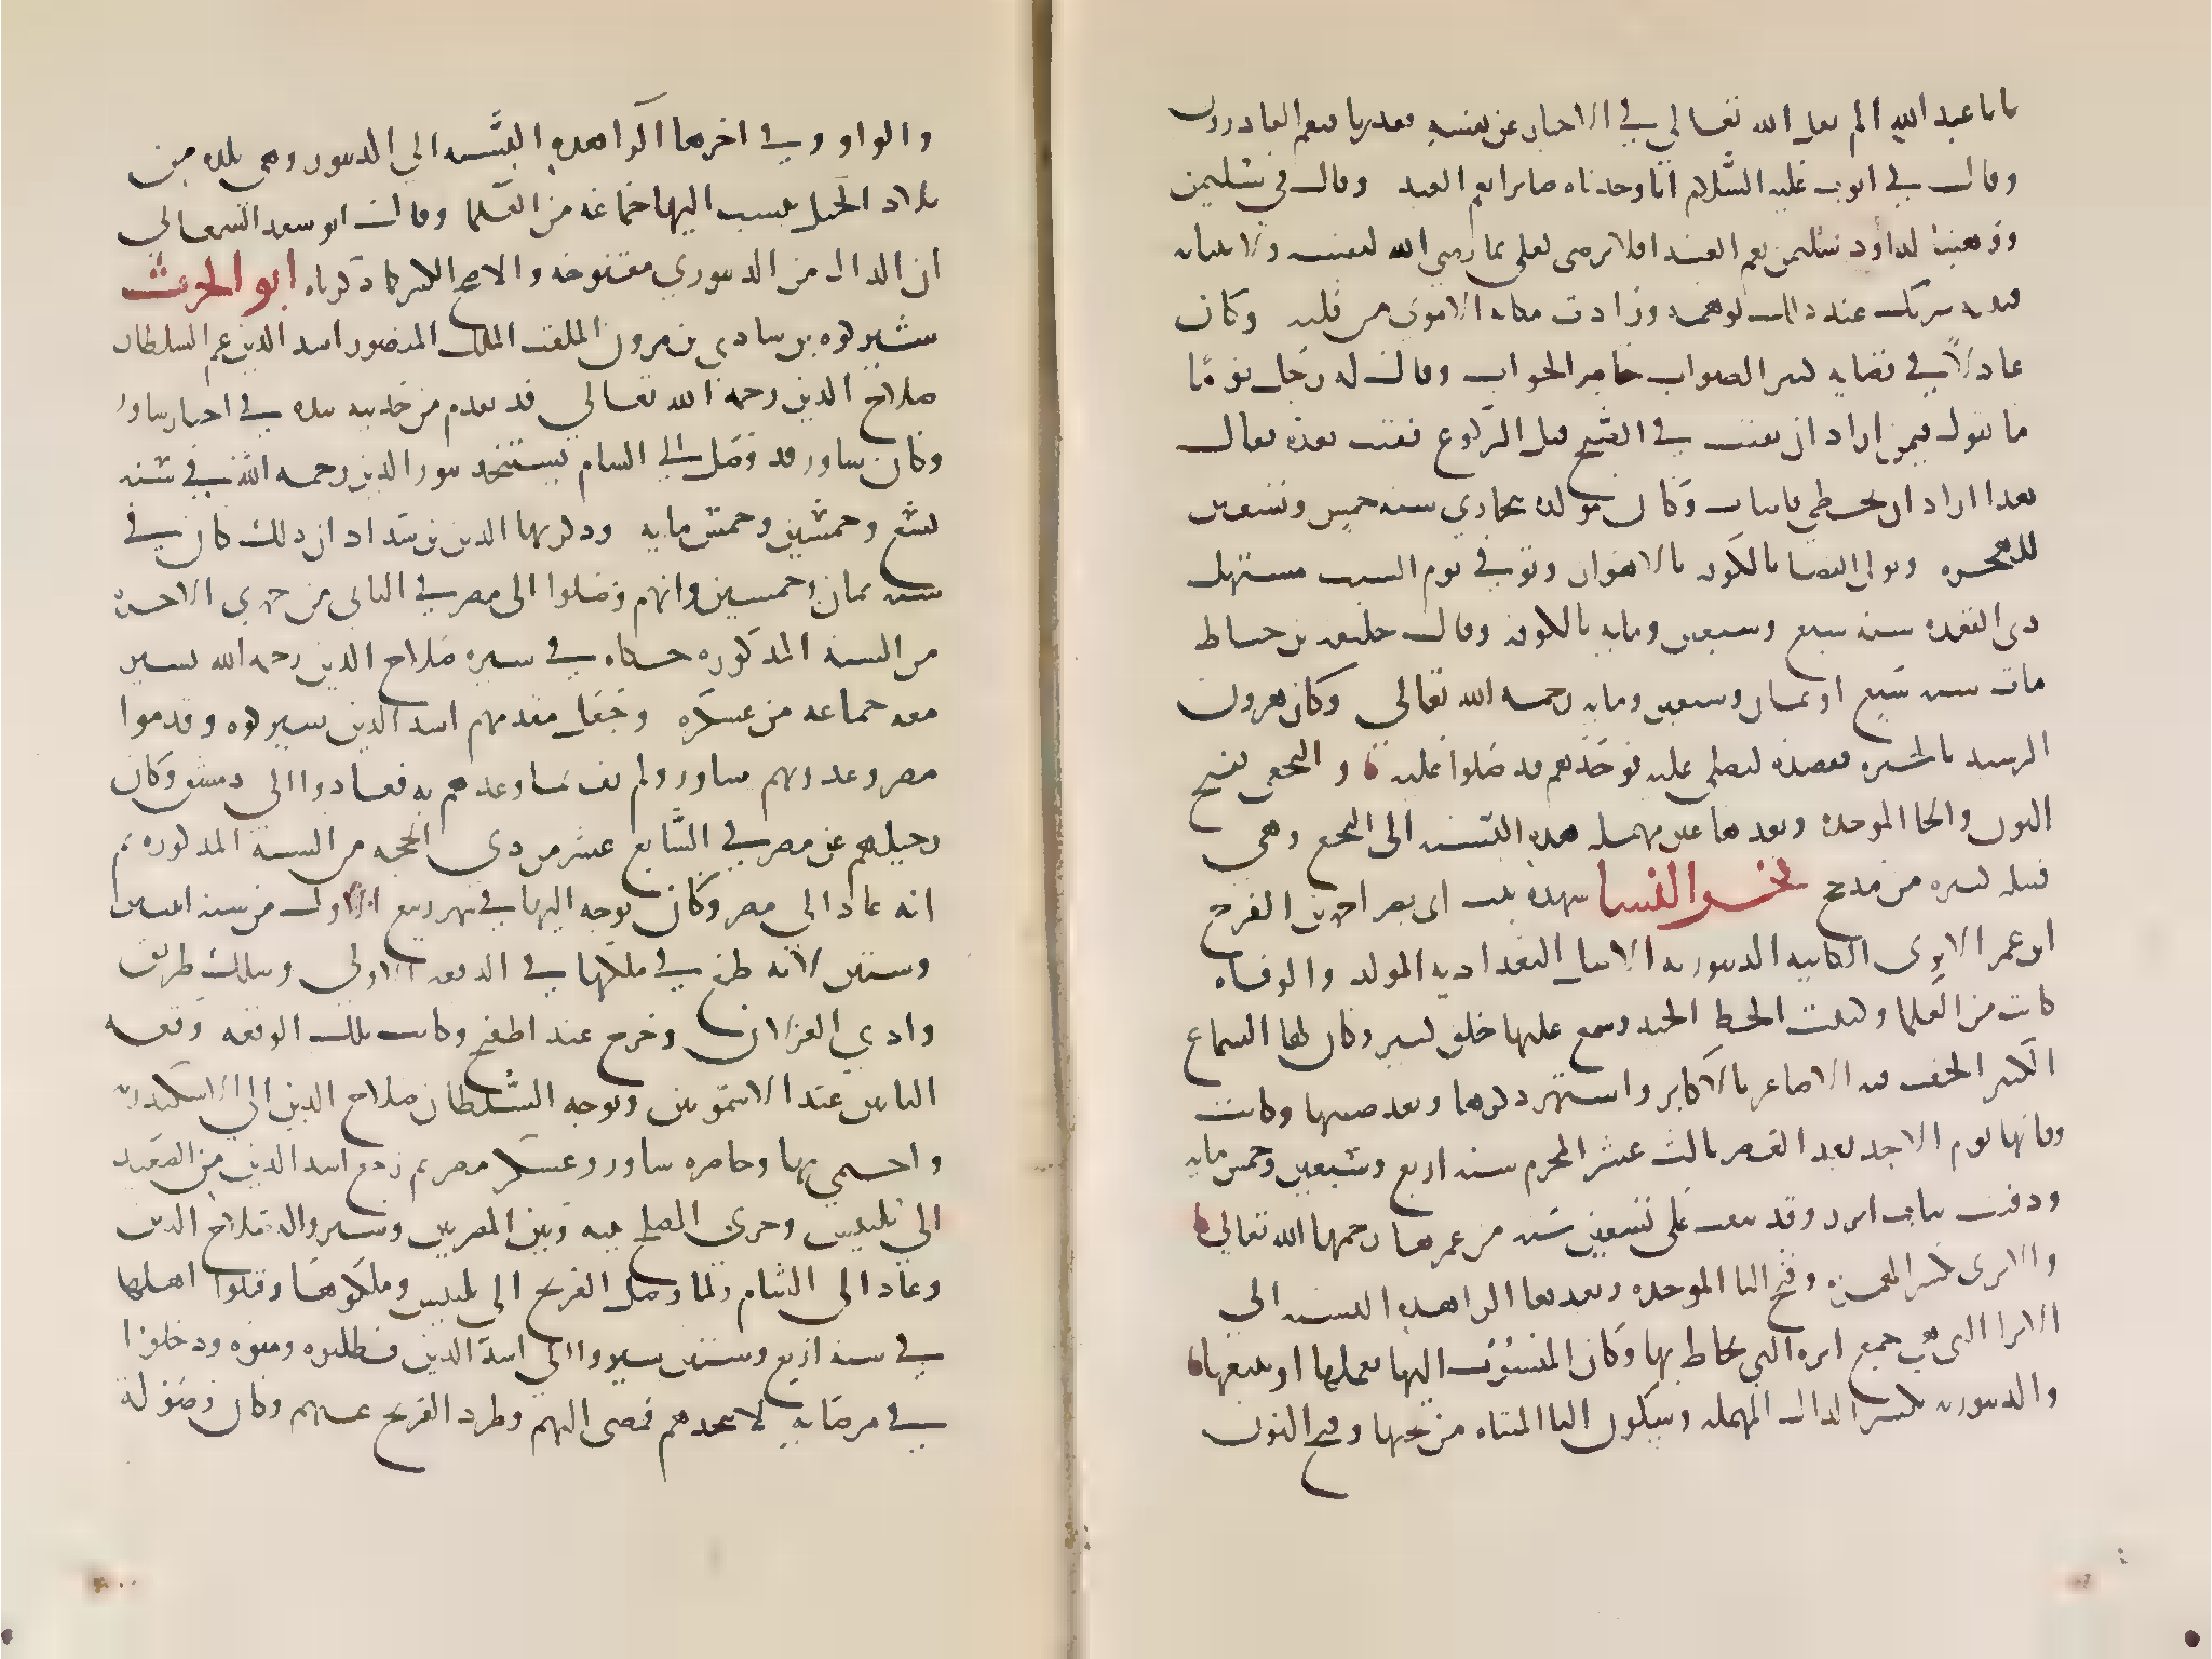 يا با عبد الله الم يقل الله تعالى في الاخبار عن نفسه فقدرنا فنعم القادرون
وقال في ايوب عليه السلام انا وجدناه صابرا نعم العبد وقال في سليمن
ووهبنا لداود سليمن نعم العبد افلا ترضى لعلي بما رضي الله لنفسه ولانبيائه
شريك عند ذلك لوهمه وزادت مكانة الاموي من قلبه وكان
عادلا في قضايه كثير الصواب حاضر الجواب وقال له رجل يوما
ما تقول فيمن اراد ان يقنت في الصبح قبل الركوع فقنت بعده فقال
هذا اراد ان يخطي فاصاب وكان مولده ببخارى سنة خمس وتسعين
للهجره وتولى القضا بالكوفه بالاهواز وتوفي يوم السبت مستهل
ذي القعده سنة سبع وسبعين ومايه بالكوفه وقال خليفه بن خياط
مات سنه سبع او ثمان وسبعين ومايه رحمه الله تعالى وكان هرون
الرشيد بالحيره فقصده ليصلي عليه فوجدهم قد صلوا عليه و النخعي بفتح
النون والخا الموحده وبعدها عين مهمله هذه النسبه الى النخع وهي
قبيله كبيره من مذحج فخر النسا شهده بنت ابي نصر احمد بن الفرج
ابن عمر الابري الكاتبه الدينوريه الاصل البغداديه المولد والوفاه
كانت من العلما وكتبت الخط الجيد وسمع عليها خلق كثير وكان لها السماع
الكثير الحقت فيه الاصاغر بالاكابر واشتهر ذكرها وبعد صيتها وكانت
وفاتها يوم الاحد بعد العصر ثالث عشر المحرم سنه اربع وسبعين وخمس مايه
ودفنت بباب ابرد وقد نيفت على تسعين سنه من عمرها رحمها الله تعالى
والابري بكسر الهمزه وفتح البا الموحده وبعدها الرا هذه النسبه الى
الابرا التي هي جمع ابره التي يخاط بها وكان المنسوب اليها يعملها او يبيعها
والدينوريه بكسر الدال المهمله وسكون اليا المثناه من تحتها وفتح النون
والواو وفي اخرها الرا هذه النسبه الى الدينور وهي بلده من
بلاد الجبل ينسب اليها جماعه من العلما وقال ابو سعد السمعاني
ان الدال من الدينوري مفتوحه والاصح الكسر كما ذكرناه ابو الحرث
شيركوه بن شادي بن مرون الملقب الملك المنصور اسد الدين عم السلطان
صلاح الدين رحمه الله تعالى قد تقدم من حديثه نبذه في اخبار شاور
وكان شاور قد وصل الى الشام يستنجد بنور الدين رحمه الله في سنه
تسع وخمسين وخمس مايه وذكر بها الدين بن شداد ان ذلك كان في
سنه ثمان وخمسين وانهم وصلوا الى مصر في الثاني من جمدى الاخره
من السنه المذكوره حكاه في سيره صلاح الدين رحمه الله تسير
معه جماعه من عسكره وجعل مقدمهم اسد الدين شيركوه وقدموا
مصر وغدر بهم شاور ولم يف بما وعدهم به فعادوا الى دمشق وكان
رحيلهم عن مصر في السابع عشر من ذي الحجه من السنه المذكوره ثم
انه عاد الى مصر وكان توجه اليها في شهر ربيع الاول من سنه اثنين
وستين لانه طمع في ملكها في الدفعه الاولى وسلك طريق
وادي الغزلان وخرج عند اطفيح وكانت تلك الوقعه وقعه
البابين عند الاشمونين وتوجه السلطان صلاح الدين الى الاسكندريه
واحتمى بها وحاصره شاور وعسكر مصر ثم رجع اسد الدين من الصعيد
الى بلبيس وجرى الصلح بينه وبين المصريين وسيروا له صلاح الدين
وعاد الى الشام ولما وصل الفرنج الى بلبيس وملكوها وقتلوا اهلها
في سنه اربع وستين سيروا الى اسد الدين فطلبوه ومنوه ودخلوا
في مرضاته لانجدهم فمضى اليهم وطرد الفرنج عنهم وكان وصوله